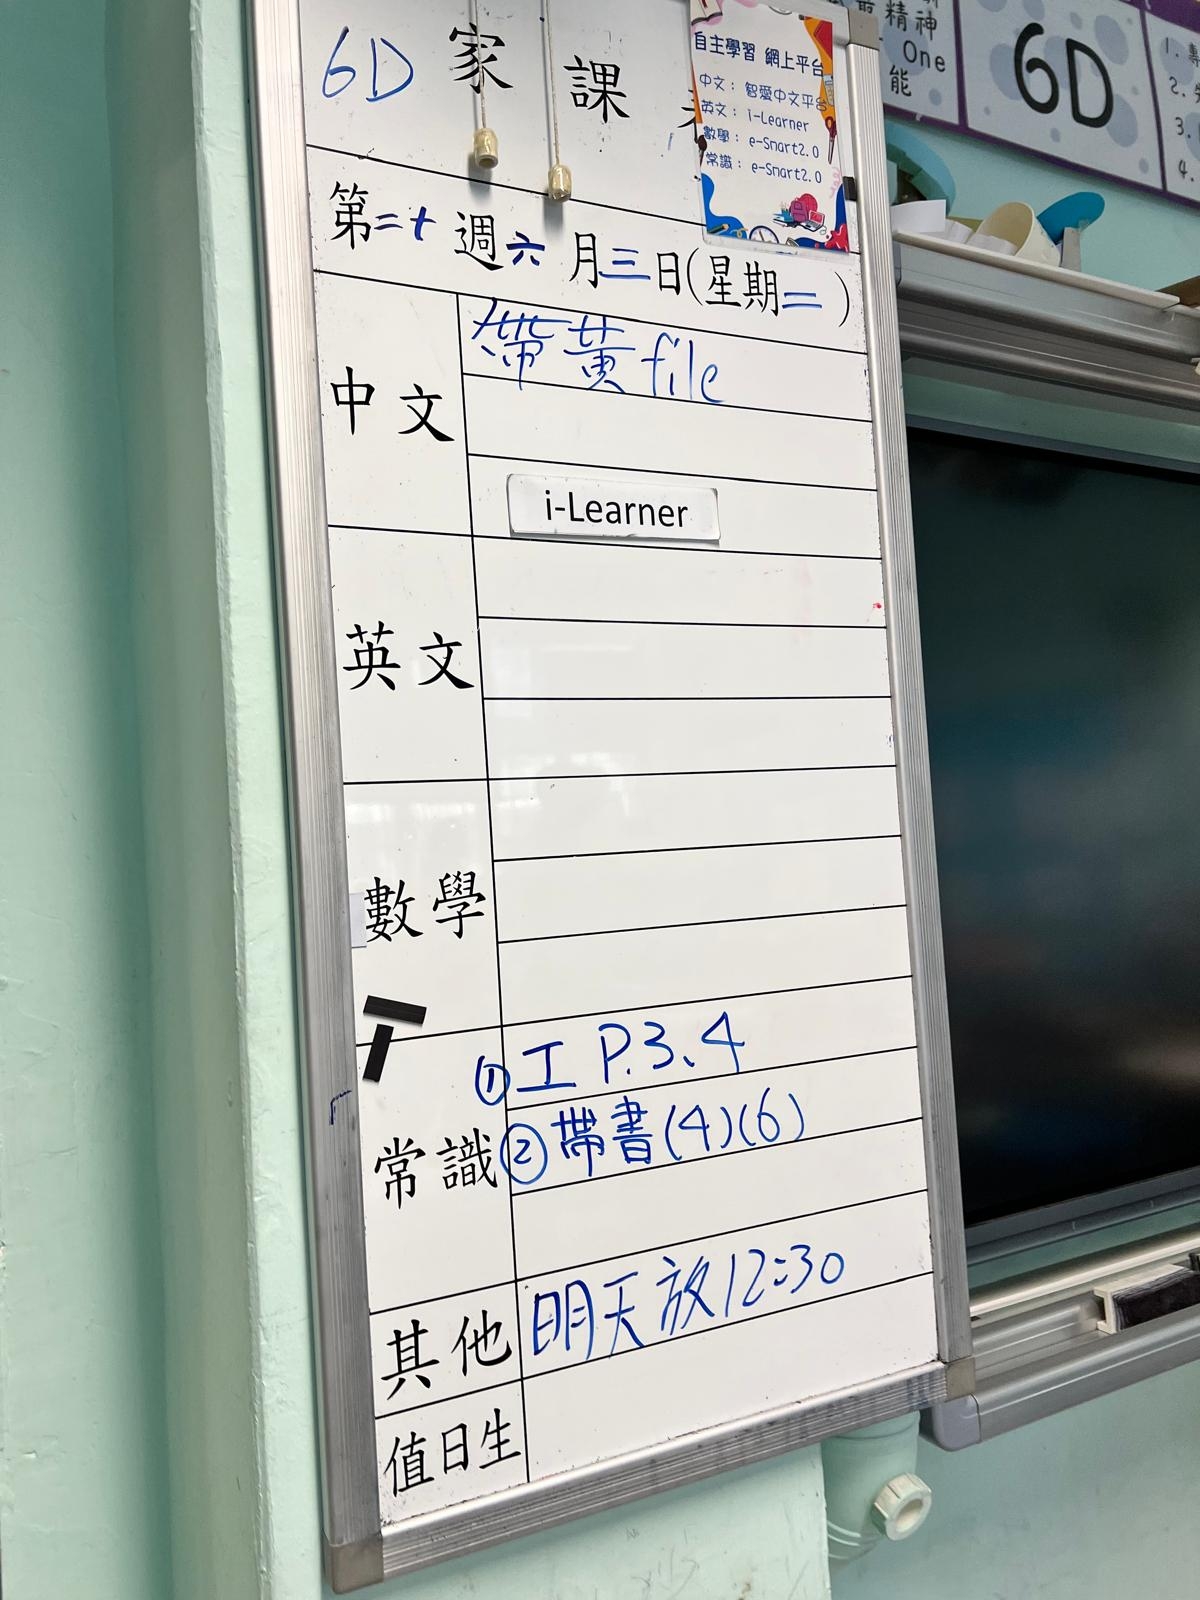 6D 家課
自主學習 網上平台
中文：智愛中文平台
英文：i-Learner
數學：e-Smart2.0
常識：e-Smart2.0
第二十週六月三日(星期二)
中文
帶黃file
i-Learner
英文
數學
常識
①工 P.3、4
②帶書(4)(6)
其他
明天放12:30
值日生
精神
One
能
6D
1.
2.
3.
4.